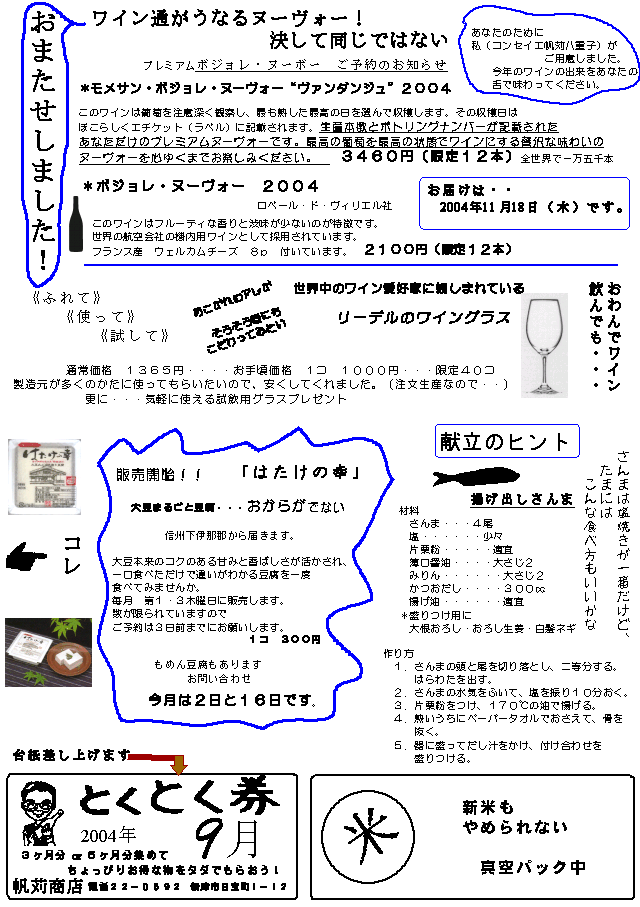 おまたせしました！
ワイン通がうなるヌーヴォー！
決して同じではない
プレミアムボジョレ・ヌーボー　ご予約のお知らせ
あなたのために
私（コンセイエ帆苅八重子）が
ご用意しました。
今年のワインの出来をあなたの
舌で味わってください。
＊モメサン・ボジョレ・ヌーヴォー“ヴァンダンジュ”２００４
このワインは葡萄を注意深く観察し、最も熟した最高の日を選んで収穫します。その収穫日は
ほこらしくエチケット（ラベル）に記載されます。生産本数とボトリングナンバーが記載された
あなただけのプレミアムヌーヴォーです。最高の葡萄を最高の状態でワインにする贅沢な味わいの
ヌーヴォーを心ゆくまでお楽しみください。　３４６０円（限定１２本）全世界で一万五千本
＊ボジョレ・ヌーヴォー　２００４
ロベール・ド・ヴィリエル社
このワインはフルーティな香りと渋味が少ないのが特徴です。
世界の航空会社の機内用ワインとして採用されています。
フランス産　ウェルカムチーズ　８ｐ　付いています。　２１００円（限定１２本）
お届けは・・
2004年11月18日（木）です。
《ふれて》
《使って》
《試して》
あこがれのアレが
そろそろ器にも
こだわってみたい
世界中のワイン愛好家に親しまれている
リーデルのワイングラス
おわんでワイン
飲んでも・・・
通常価格　１３６５円・・・・お手頃価格　１コ　１０００円・・・限定４０コ
製造元が多くのかたに使ってもらいたいので、安くしてくれました。（注文生産なので・・）
更に・・・気軽に使える試飲用グラスプレゼント
はたけの幸
コレ
販売開始！！　「はたけの幸」
大豆まるごと豆腐・・・おからがでない
信州下伊那郡から届きます。
大豆本来のコクのある甘みと香ばしさが活かされ、
一口食べただけで違いがわかる豆腐を一度
食べてみませんか。
毎月　第１・３木曜日に販売します。
数が限られていますので
ご予約は３日前までにお願いします。
１コ　３００円
もめん豆腐もあります
お問い合わせ
今月は２日と１６日です。
献立のヒント
揚げ出しさんま
さんまは塩焼きが一番だけど、
たまには
こんな食べ方もいいかな
材料
さんま・・・４尾
塩・・・・・・少々
片栗粉・・・・・適宜
薄口醤油・・・・大さじ２
みりん・・・・・大さじ２
かつおだし・・・・３００cc
揚げ油・・・・・・適宜
＊盛りつけ用に
大根おろし・おろし生姜・白髪ネギ
作り方
１．さんまの頭と尾を切り落とし、二等分する。
はらわたを出す。
２．さんまの水気をふいて、塩を振り１０分おく。
３．片栗粉をつけ、１７０℃の油で揚げる。
４．熱いうちにペーパータオルでおさえて、骨を
抜く。
５．器に盛ってだし汁をかけ、付け合わせを
盛りつける。
台紙差し上げます
とくとく券
2004年　9月
３ヶ月分 or ６ヶ月分集めて
ちょっぴりお得な物をタダでもらおう！
帆苅商店　電話２２－０５９２
米
新米も
やめられない
真空パック中